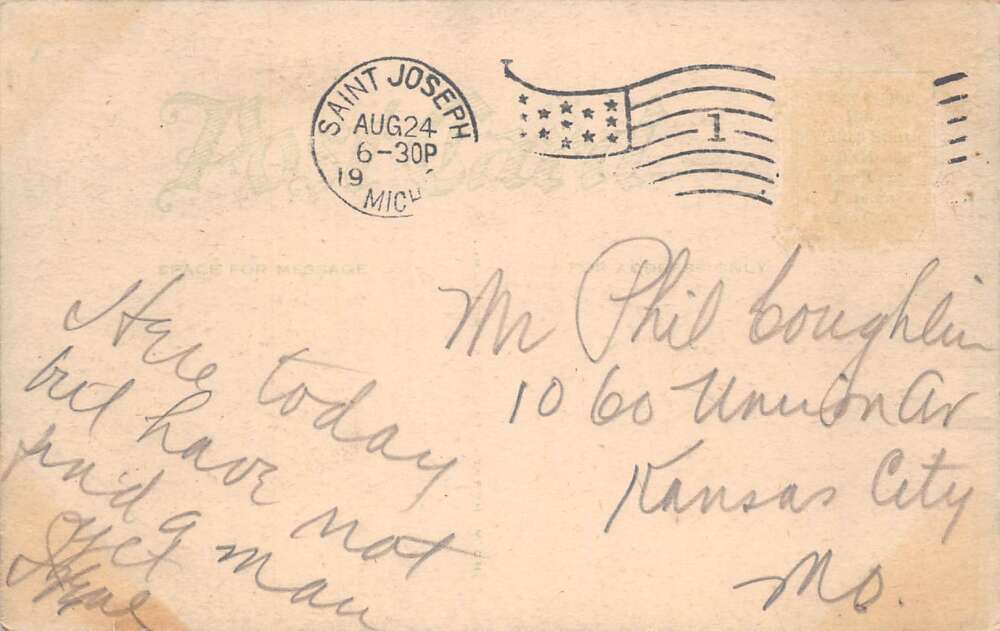 SAINT JOSEPH
AUG 24
6-30P
19
MICH
1
Post Card
SPACE FOR MESSAGE
FOR ADDRESS ONLY
Here today
but have not
find a man
yet
Mr Phil Coughlin
1060 Union Av
Kansas City
Mo.